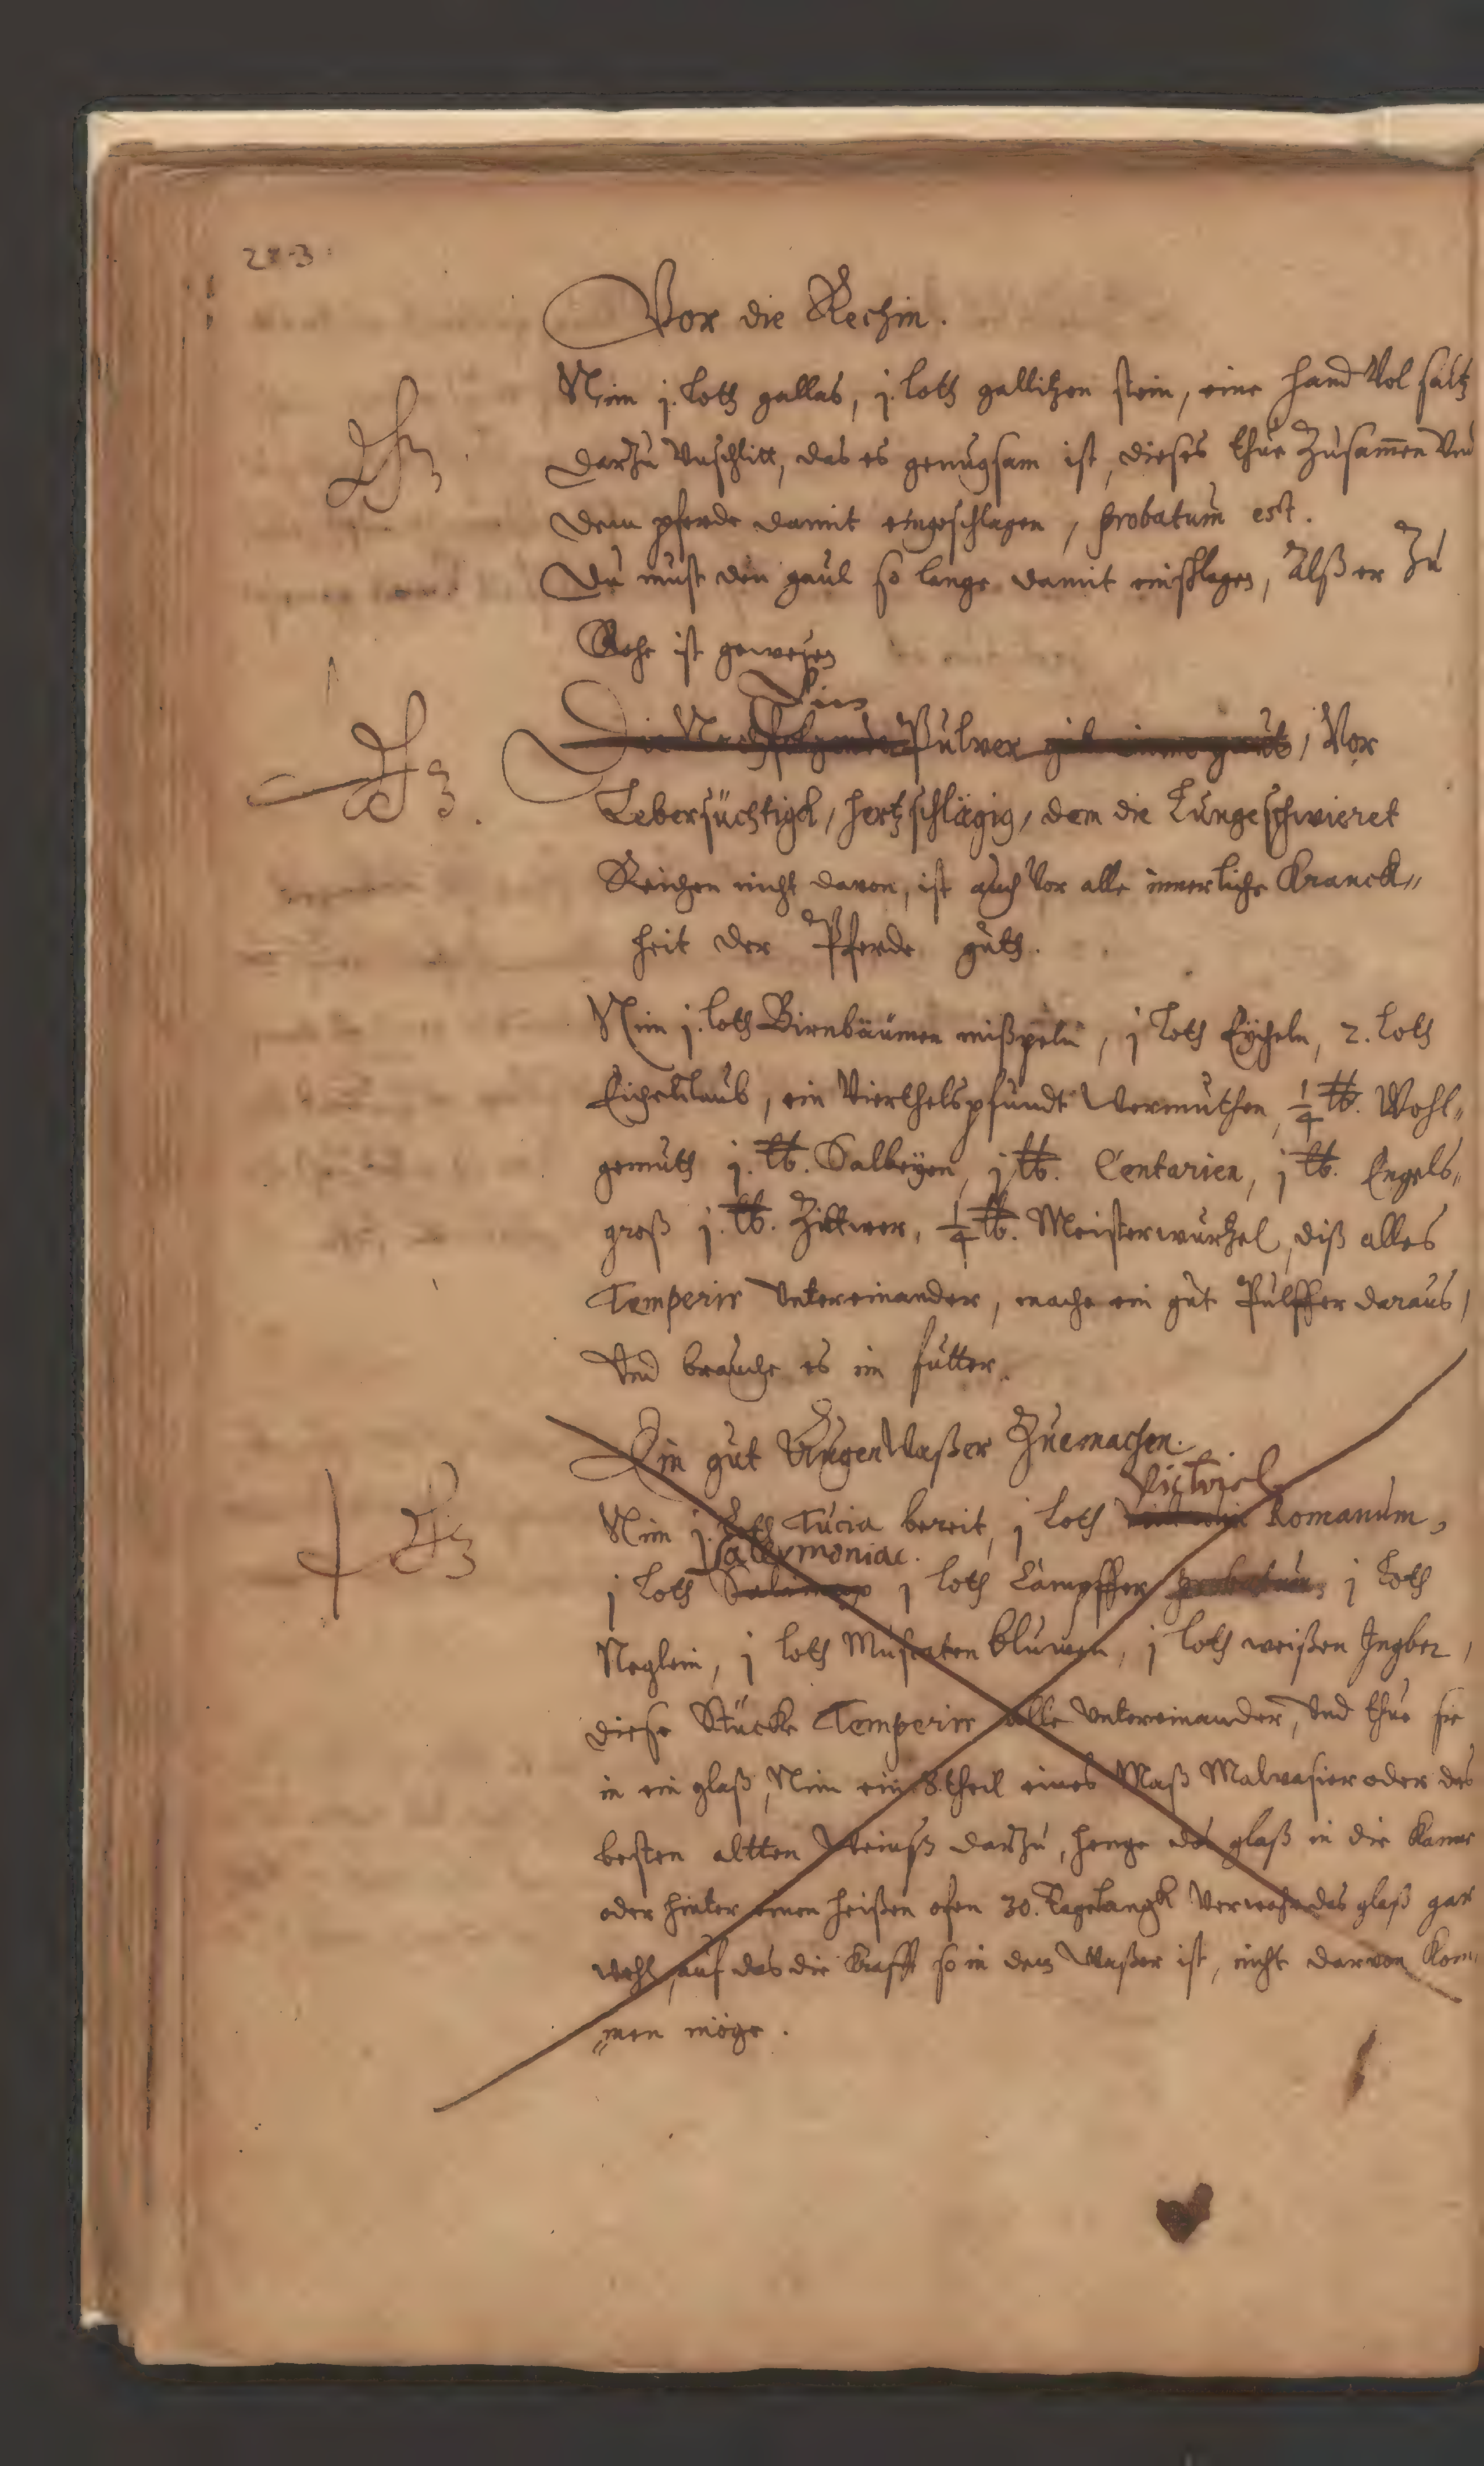 Vor die Rechin.
Nim j. loth gallas, j. loth gallitzen stein, eine hand Vol saltz
darzu Vnschlitt, das es genugsam ist, dieses thue Zusam̄en Vnd
dem pferde damit eingeschlagen, probatum est.
Du must den gaul so lange damit einschlagen, Alß er Zu
Rehe ist gewesen
Ein
Die Nachfolgende Pulver gib einem gaul, Vor
Lebersüchtigk, hertzschlägig, dem die Lunge schwieret
Keichen nicht davon, ist auch Vor alle innerliche Kranck„
heit der Pferde guth.
Nim j. loth Birnbäumen mißpeln, j loth Eycheln, 2. loth
Eichenlaub, ein Vierthelspfundt Wermuthen, ¼ ℔. Wohl„
gemuth j. ℔. Salbeyen, j ℔. Centarien, j ℔. Engels„
groß j. ℔. Zittwer, ¼ ℔. Meisterwurtzel, diß alles
Temperir Untereinander, mache ein gut Pulffer daraus,
Und brauche es im futter.
Ein gut AugenWaßer Zuemachen.
Victriol
Nim j. Loth Tucia bereit, j loth Romanum,
Salarmoniac.
j loth j loth Campffer probatum j Loth
Neglein, j loth Muscaten blumen, j loth weißen Ingber,
diese Stücke Temperir alle Untereinander, Und thue sie
in ein glaß, Nim ein 8.theil eines Maß Malvasier oder des
besten altten Weinß darzu, henge das glaß in die Kamer
oder hinter einen heißen ofen 30. Tagelangk Verwahr das glaß gar
wohl, auf das die Krafft so in dem Waßer ist, nicht darvon Kom„
„men möge.